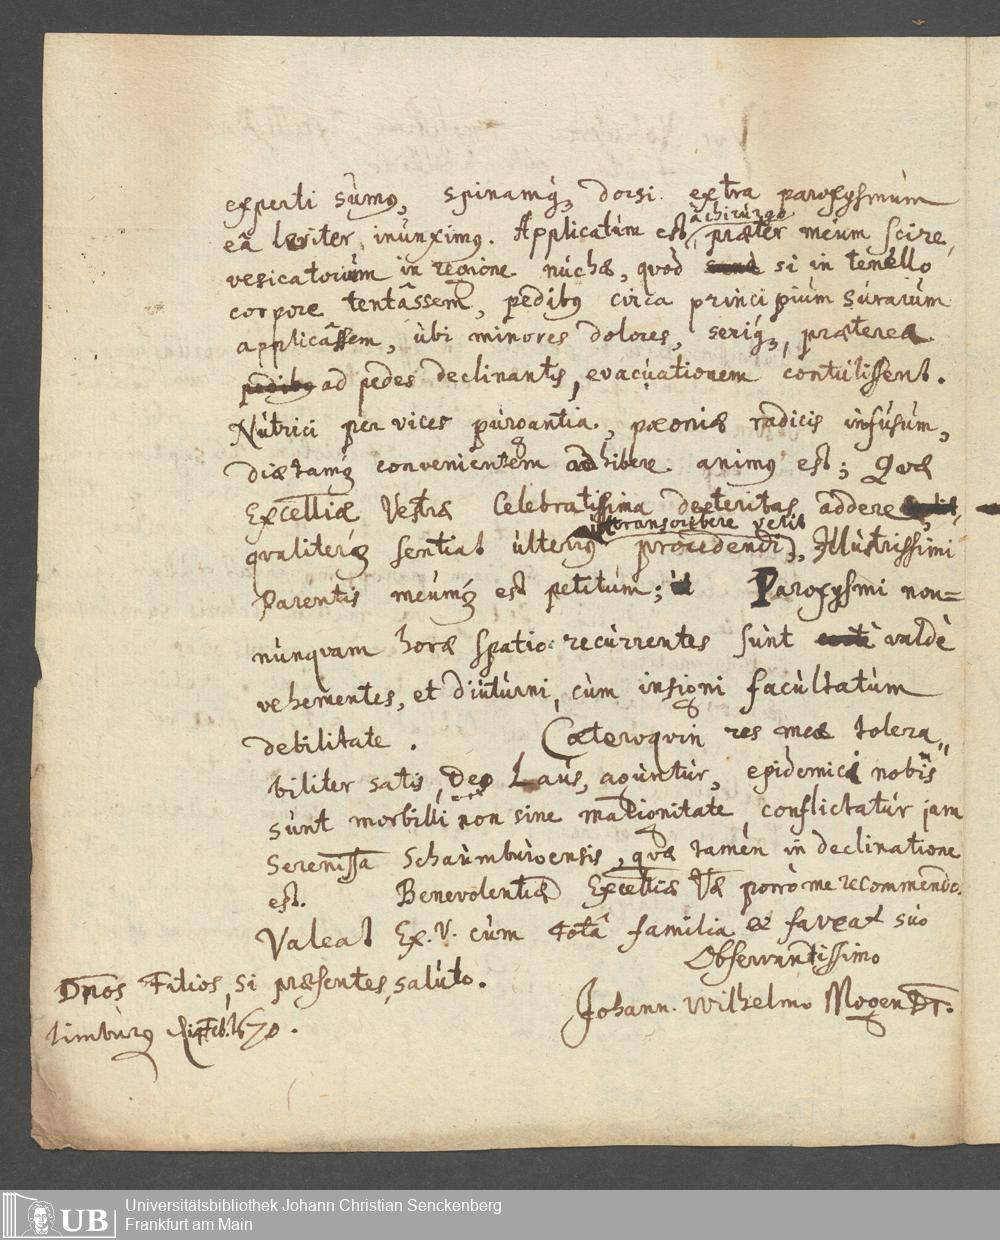 experti sumus, spinamq; dorsi extra paroxysmum
eâ leviter inunximus. Applicatum est, à chirurgo præter meum scire,
vesicatorium in regione nuchæ, quod si in tenello
corpore tentâssem, pedibus circa principium surarum
applicâssem, ubi minores dolores, seriq;, præterea
pedibus ad pedes declinantis, evacuationem contulissent.
Nutrici per vices purgantia, pæoniæ radicis infusum,
diætamq; convenientem adhibere animus est; Quæ
Excellæ Vestræ Celebratissima dexteritas addere
qualiterq; sentiat ulterius procedendum, transcribere velit, Illustrissimi
Parentis meumq; est petitum; Paroxysmi non=
nunquam horæ spatio recurrentes sunt valdè
vehementes, et diuturni, cum insigni facultatum
debilitate. Cæteroquin res meæ tolera„
biliter satis, Deo Laus, aguntur, epidemici nobis
sunt morbilli non sine malignitate, conflictatur jam
Serenissa Schaumburgensis, quæ tamen in declinatione
est. Benevolentiæ Excellæ Væ porrò me recommendo.
Valeat Ex. V. cum totâ familia et faveat suo
Observantissimo
Dnos Filios, si præsentes, saluto.
Johann. Wilhelmo Mogen Dr.
Limburg Feb. 1670.
Universitätsbibliothek Johann Christian Senckenberg
UB Frankfurt am Main